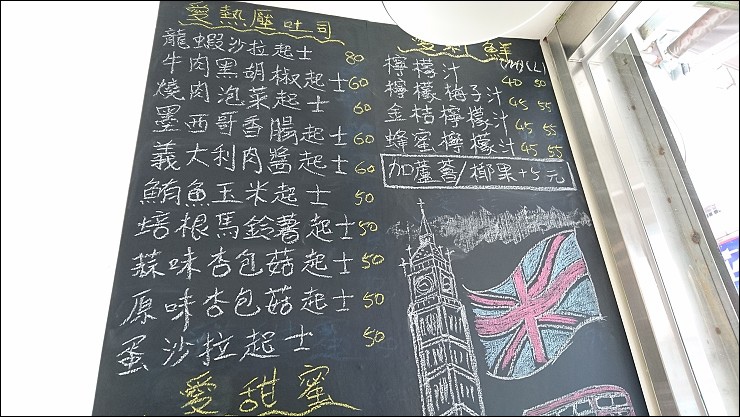 愛熱壓吐司
龍蝦沙拉起士 80
牛肉黑胡椒起士 60
燒肉泡菜起士 60
墨西哥香腸起士 60
義大利肉醬起士 60
鮪魚玉米起士 50
培根馬鈴薯起士 50
蒜味杏包菇起士 50
原味杏包菇起士 50
蛋沙拉起士 50
愛甜蜜
(M)(L)
檸檬汁 40 50
檸檬梅子汁 45 55
金桔檸檬汁 45 55
蜂蜜檸檬汁 45 55
加蘆薈/椰果+5元